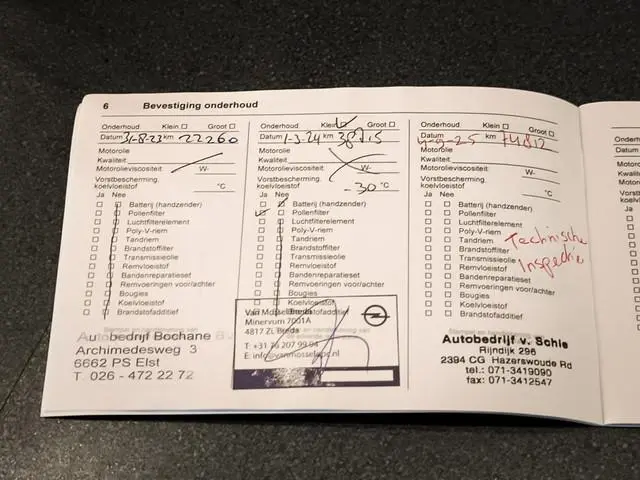 6 Bevestiging onderhoud
Onderhoud Klein Groot
Datum 31-8-23 km 22260
Motorolie
Kwaliteit
Motorolieviscositeit W-
Vorstbescherming
koelvloeistof °C
Ja Nee
Batterij (handzender)
Pollenfilter
Luchtfilterelement
Poly-V-riem
Tandriem
Brandstoffilter
Transmissieolie
Remvloeistof
Bandenreparatieset
Remvoeringen voor/achter
Bougies
Koelvloeistof
Brandstofadditief
Autobedrijf Bochane
Archimedesweg 3
6662 PS Elst
T. 026 - 472 22 72
Onderhoud Klein Groot
Datum 1-3-24 km
Motorolie
Kwaliteit
Motorolieviscositeit W-
Vorstbescherming
koelvloeistof -30 °C
Ja Nee
Batterij (handzender)
Pollenfilter
Luchtfilterelement
Poly-V-riem
Tandriem
Brandstoffilter
Transmissieolie
Remvloeistof
Bandenreparatieset
Remvoeringen voor/achter
Bougies
Koelvloeistof
Brandstofadditief
Van Mossel
Minervum 7001A
4817 ZL Breda
T: +31 76 207 99
E: info@vanmosselopc.nl
Onderhoud Klein Groot
Datum 4-9-25 km
Motorolie
Kwaliteit
Motorolieviscositeit W-
Vorstbescherming
koelvloeistof °C
Ja Nee
Batterij (handzender)
Pollenfilter
Luchtfilterelement
Poly-V-riem
Tandriem
Brandstoffilter
Transmissieolie
Remvloeistof
Bandenreparatieset
Remvoeringen voor/achter
Bougies
Koelvloeistof
Brandstofadditief
Technische
Inspectie
Autobedrijf v. Schie
Rijndijk 296
2394 CG Hazerswoude Rd
tel.: 071-3419090
fax: 071-3412547